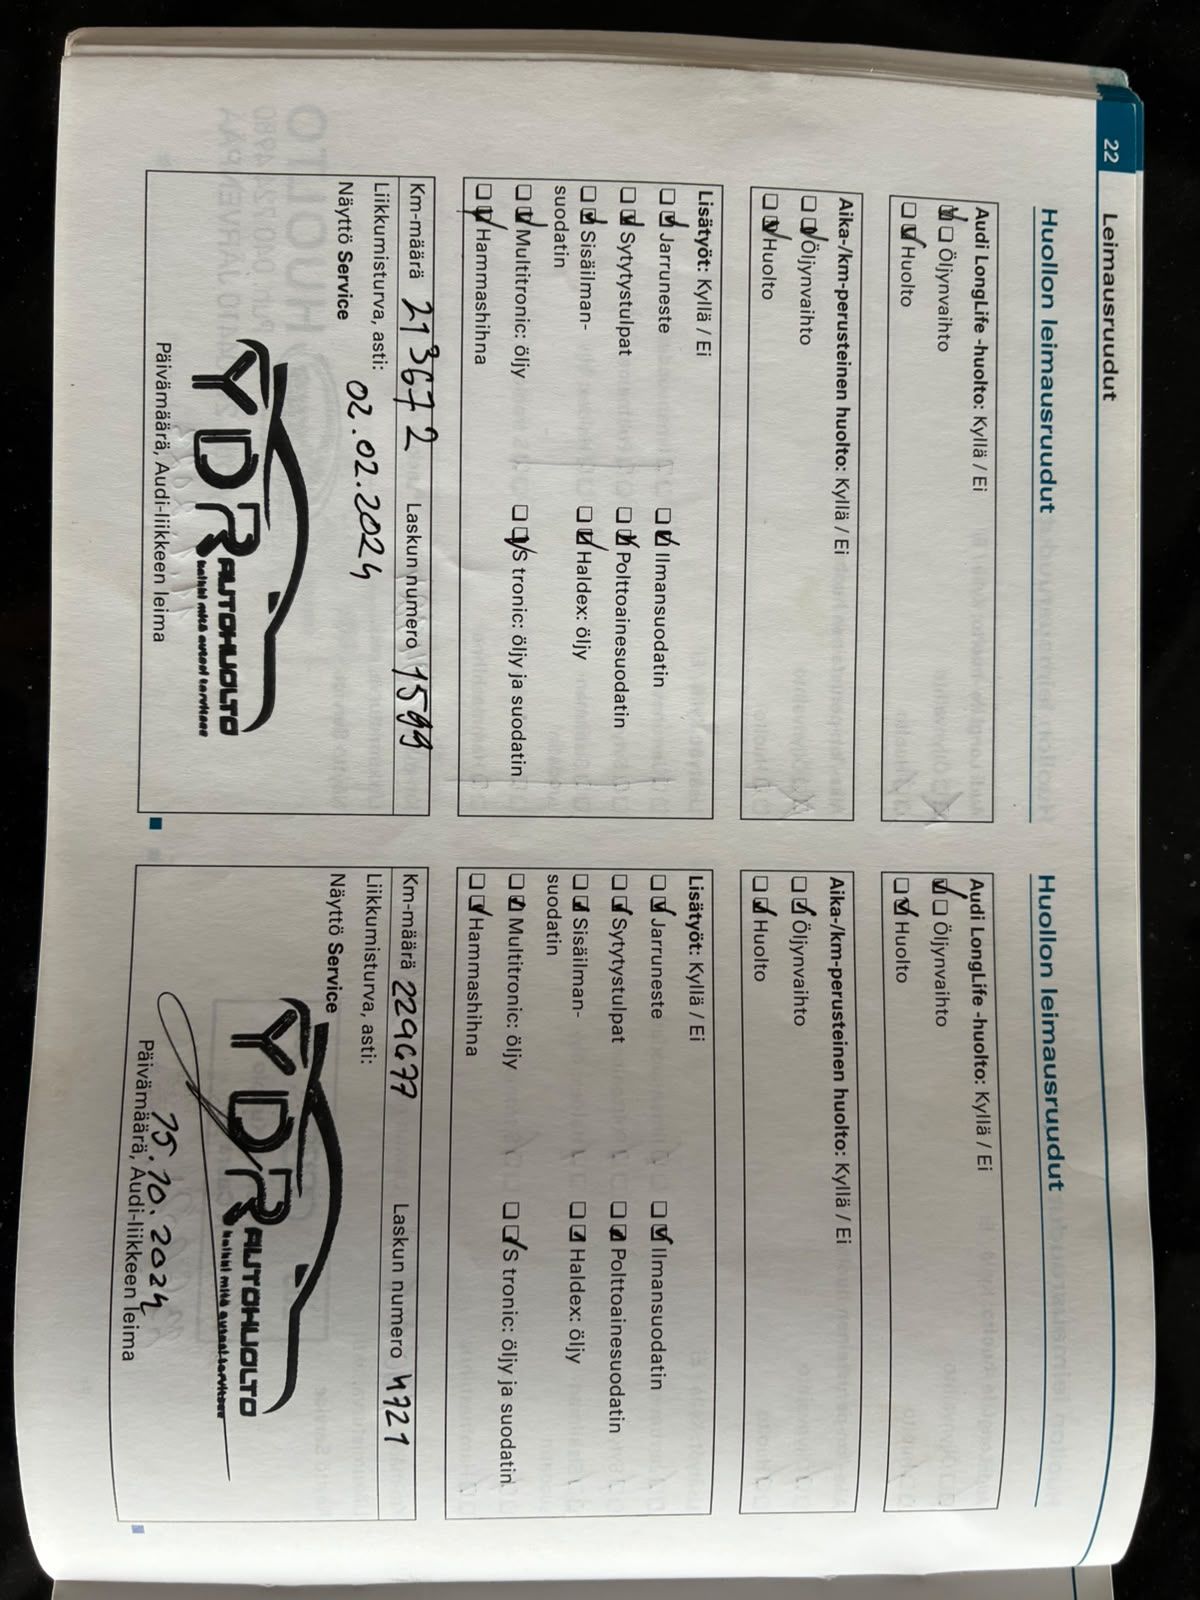 22
Leimausruudut
Huollon leimausruudut
Audi LongLife -huolto: Kyllä / Ei
Öljynvaihto
Huolto
Aika-/km-perusteinen huolto: Kyllä / Ei
Öljynvaihto
Huolto
Lisätyöt: Kyllä / Ei
Jarruneste
Ilmansuodatin
Sytytystulpat
Polttoainesuodatin
Sisäilman-
suodatin
Haldex: öljy
Multitronic: öljy
S tronic: öljy ja suodatin
Hammashihna
Km-määrä 213672 Laskun numero 1599
Liikkumisturva, asti:
02.02.2024
Näyttö Service
YDR AUTOHUOLTO
kaikki mitä autosi tarvitsee
Päivämäärä, Audi-liikkeen leima
Huollon leimausruudut
Audi LongLife -huolto: Kyllä / Ei
Öljynvaihto
Huolto
Aika-/km-perusteinen huolto: Kyllä / Ei
Öljynvaihto
Huolto
Lisätyöt: Kyllä / Ei
Jarruneste
Ilmansuodatin
Sytytystulpat
Polttoainesuodatin
Sisäilman-
suodatin
Haldex: öljy
Multitronic: öljy
S tronic: öljy ja suodatin
Hammashihna
Km-määrä 229677 Laskun numero 4721
Liikkumisturva, asti:
Näyttö Service
YDR AUTOHUOLTO
kaikki mitä autosi tarvitsee
15.10.2024
Päivämäärä, Audi-liikkeen leima